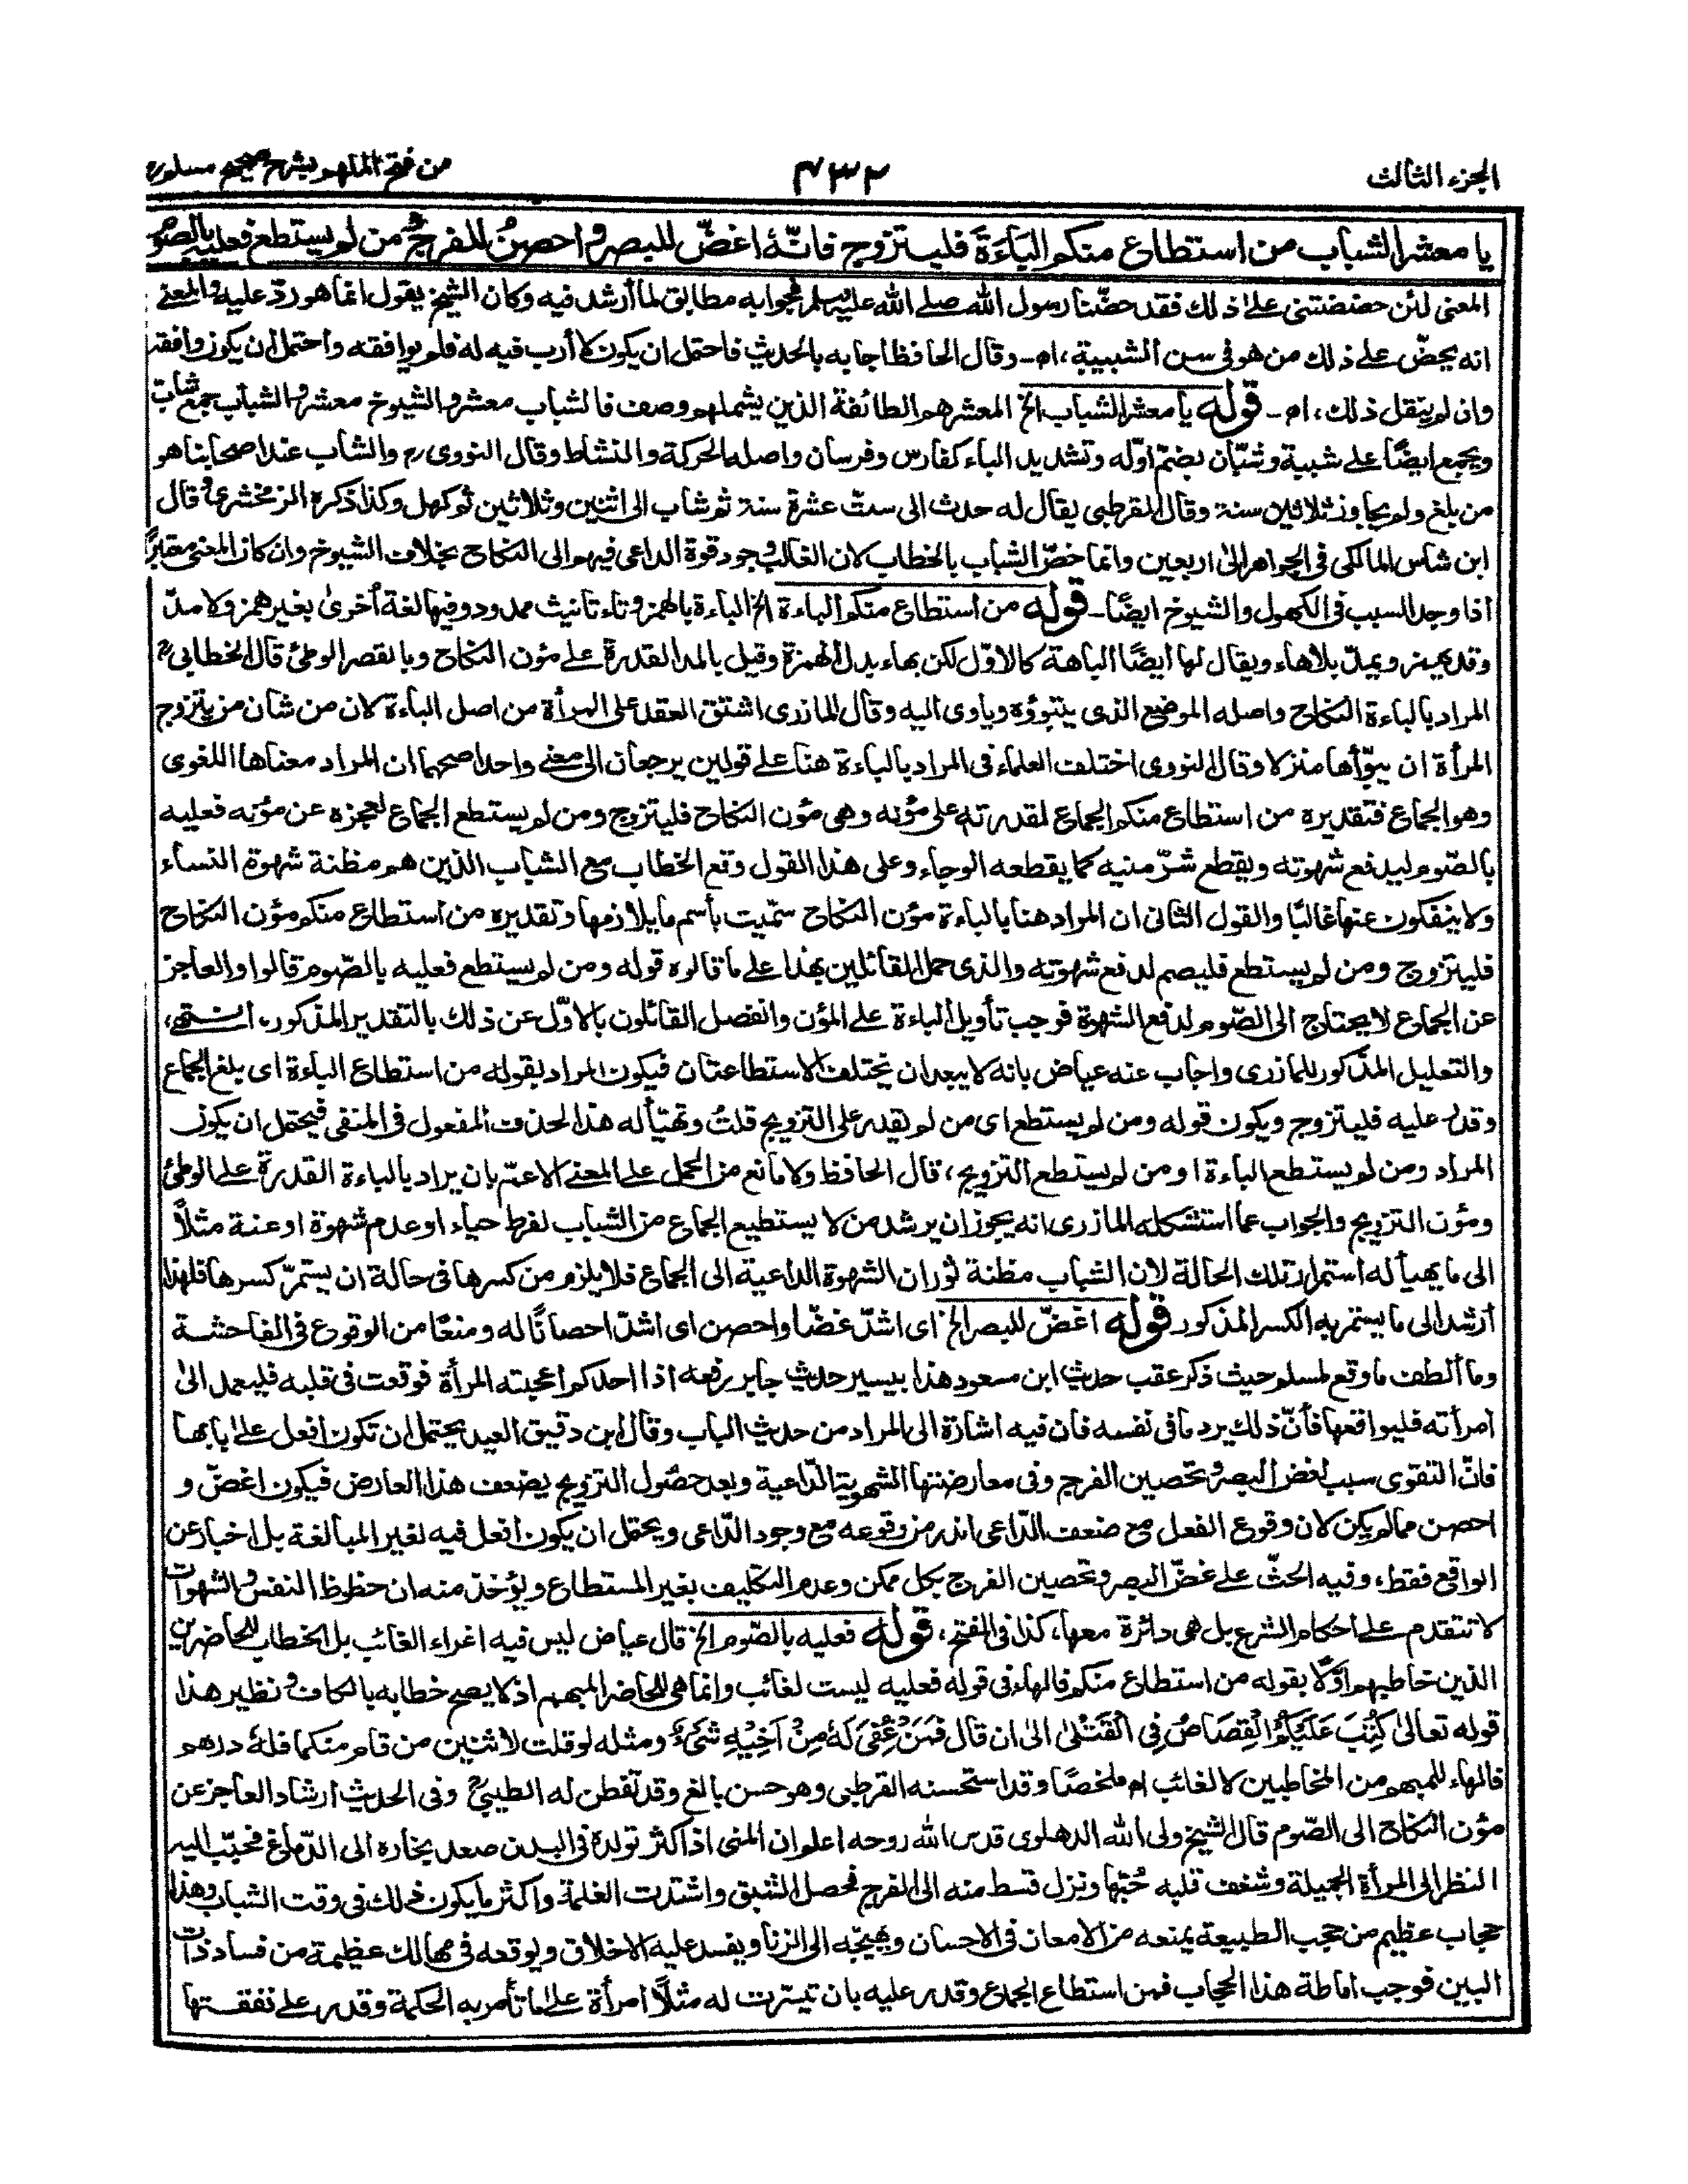 الجزء الثالث
٤٣٢
من فتح الملهم بشرح صحيح مسلم
يا معشر الشباب من استطاع منكم الباءَةَ فليتزوج فانّهٗ اغضّ للبصر واحصنُ للفرج ومن لم يستطع فعليه بالصوم
المعنى لئن حضضتنى على ذلك فقد حضّنا رسول الله صلے الله عليه وسلم فجوابه مطابق لما أرشد فيه وكان الشيخ يقول انما هو ردّ عليه والمعنے
انه يحضّ على ذلك من هو فى سن الشبيبة، اھ۔ وقال الحافظ اجابه بالحديث فاحتمل ان يكون لا أرب فيه له فلم يوافقه واحتمل ان يكون وافقه
وان لم ينقل ذلك، اھ۔ قوله يا معشر الشباب الخ المعشر هم الطائفة الذين يشملهم وصف فالشباب معشر والشيوخ معشر والشباب جمع شاب
ويجمع ايضًا على شبيبة وشبّان بضم اوّله وتشديد الباء كفارس وفرسان واصله الحركة والنشاط وقال النووى رح والشاب عند اصحابنا هو
من بلغ ولم يجاوز ثلاثين سنة وقال القرطبى يقال له حدث الى ستّ عشرة سنة ثم شاب الى اثنين وثلاثين ثم كهل وكذا ذكره الزمخشرى وقال
ابن شاس المالكى فى الجواهر الىٰ اربعين وانما خصّ الشباب بالخطاب لان الغالب وجود قوة الداعى فيهم الى النكاح بخلاف الشيوخ وان كان المعنى معتبرًا
اذا وجد السبب فى الكهول والشيوخ ايضًا۔ قوله من استطاع منكم الباءة الخ الباءة بالهمز وتاء تانيث ممدود وفيها لغة أخرىٰ بغير همز ولا مدّ
وقد يهمز ويمدّ بلا هاء ويقال لها ايضًا الباهة كالاوّل لكن بهاء بدل الهمزة وقيل بالمد القدرة على مؤن النكاح وبالقصر الوطئ قال الخطابى رح
المراد بالباءة النكاح واصله الموضع الذى يتبوّؤه وياوى اليه وقال المازرى اشتق العقد على المرأة من اصل الباءة لان من شان من يتزوج
المرأة ان يبوّأها منزلا وقال النووى اختلف العلماء فى المراد بالباءة هنا على قولين يرجعان الى معنى واحد اصحهما ان المراد معناها اللغوى
وهو الجماع فتقديره من استطاع منكم الجماع لقدرته على مؤنه وهى مؤن النكاح فليتزوج ومن لم يستطع الجماع لعجزه عن مؤنه فعليه
بالصّوم ليدفع شهوته ويقطع شرّ منيه كما يقطعه الوجاء وعلى هذا القول وقع الخطاب مع الشباب الذين هم مظنة شهوة النساء
ولا ينفكون عنها غالبًا والقول الثانى ان المراد هنا بالباءة مؤن النكاح سمّيت بأسم ما يلازمها وتقديره من استطاع منكم مؤن النكاح
فليتزوج ومن لم يستطع فليصم لدفع شهوته والذى حمل القائلين بهذا على ما قالوه قوله ومن لم يستطع فعليه بالصّوم قالوا والعاجز
عن الجماع لا يحتاج الى الصّوم لدفع الشهوة فوجب تأويل الباءة على المؤن وانفصل القائلون بالاوّل عن ذلك بالتقدير المذكور، انتهى،
والتعليل المذكور للمازرى واجاب عنه عياض بانه لا يبعد ان يختلف الاستطاعتان فيكون المراد بقوله من استطاع الباءة اى بلغ الجماع
وقدر عليه فليتزوج ويكون قوله ومن لم يستطع اى من لم يقدر على التزويج قلتُ وتهيّأ له هذا لحذف المفعول فى المنفى فيحتمل ان يكون
المراد ومن لم يستطع الباءة او من لم يستطع التزويج، قال الحافظ ولا مانع من الحمل على المعنى الاعمّ بان يراد بالباءة القدرة على الوطئ
ومؤن التزويج والجواب عما استشكله المازرى انه يجوز ان يرشد من لا يستطيع الجماع من الشباب لفرط حياء او عدم شهوة او عنة مثلاً
الى ما يهيأ له استمرار تلك الحالة لان الشباب مظنة ثوران الشهوة الداعية الى الجماع فلا يلزم من كسرها فى حالة ان يستمرّ كسرها فلهذا
أرشد الى ما يستمر به الكسر المذكور قوله اغضّ للبصر الخ اى اشدّ غضّا واحصن اى اشدّ احصانًا له ومنعًا من الوقوع فى الفاحشة
وما ألطف ما وقع لمسلم حيث ذكر عقب حديث ابن مسعود هذا بيسير حديث جابر رفعه اذا احدكم اعجبته المرأة فوقعت فى قلبه فليعمل الىٰ
امرأته فليواقعها فأنّ ذلك يرد ما فى نفسه فان فيه اشارة الى المراد من حديث الباب وقال ابن دقيق العيد يحتمل ان تكون افعل على بابها
فانّ التقوى سبب لغض البصر وتحصين الفرج وفى معارضتها الشهوية الدّاعية وبعد حصُول التزويج يضعف هذا العارض فيكون اغضّ و
احصن مما لم يكن لان وقوع الفعل مع ضعف الدّاعى اندر من وقوعه مع وجود الدّاعى ويحتمل ان يكون افعل فيه لغير المبالغة بل اخبار عن
الواقع فقط، وفيه الحثّ على غضّ البصر وتحصين الفرج بكل ممكن وعدم التكليف بغير المستطاع ويؤخذ منه ان حظوظ النفس والشهوات
لا تتقدم على احكام الشرع بل هى دائرة معها، كذا فى الفتح، قوله فعليه بالصّوم الخ قال عياض ليس فيه اغراء الغائب بل الخطاب للحاضرين
الذين خاطبهم اوّلًا بقوله من استطاع منكم فالهاء فى قوله فعليه ليست لغائب وانما هى للحاضر المبهم اذ لا يصح خطابه بالكاف ونظير هذا
قوله تعالىٰ كُتِبَ عَلَيْكُمُ الْقِصَاصُ فِي الْقَتْلىٰ الىٰ ان قال فَمَنْ عُفِيَ لَهٗ مِنْ اَخِيْهِ شَىْءٌ ومثله لو قلت لاثنين من قام منكما فلهٗ درهم
فالهاء للمبهم من المخاطبين لا لغائب اھ ملخصًا وقد استحسنه القرطبى وهو حسن بالغ وقد تفطن له الطيبى رح وفى الحديث ارشاد العاجز عن
مؤن النكاح الى الصّوم قال الشيخ ولى الله الدهلوى قدس الله روحه اعلم ان المنى اذا كثر تولده فى البدن صعد بخاره الى الدّماغ فحبّب اليه
النظر الى المرأة الجميلة وشغف قلبه حُبّها ونزل قسط منه الى الفرج فحصل الشبق واشتدت الغلمة واكثر ما يكون ذلك فى وقت الشباب وهذا
حجاب عظيم من حجب الطبيعة يمنعه من الامعان فى الاحسان ويهيّجه الى الزنا ويفسد عليه الاخلاق ويوقعه فى مهالك عظيمة من فساد ذات
البين فوجب اماطة هذا الحجاب فمن استطاع الجماع وقدر عليه بان تيسّرت له مثلاً امرأة على ما تأمر به الحكمة وقدر على نفقتها